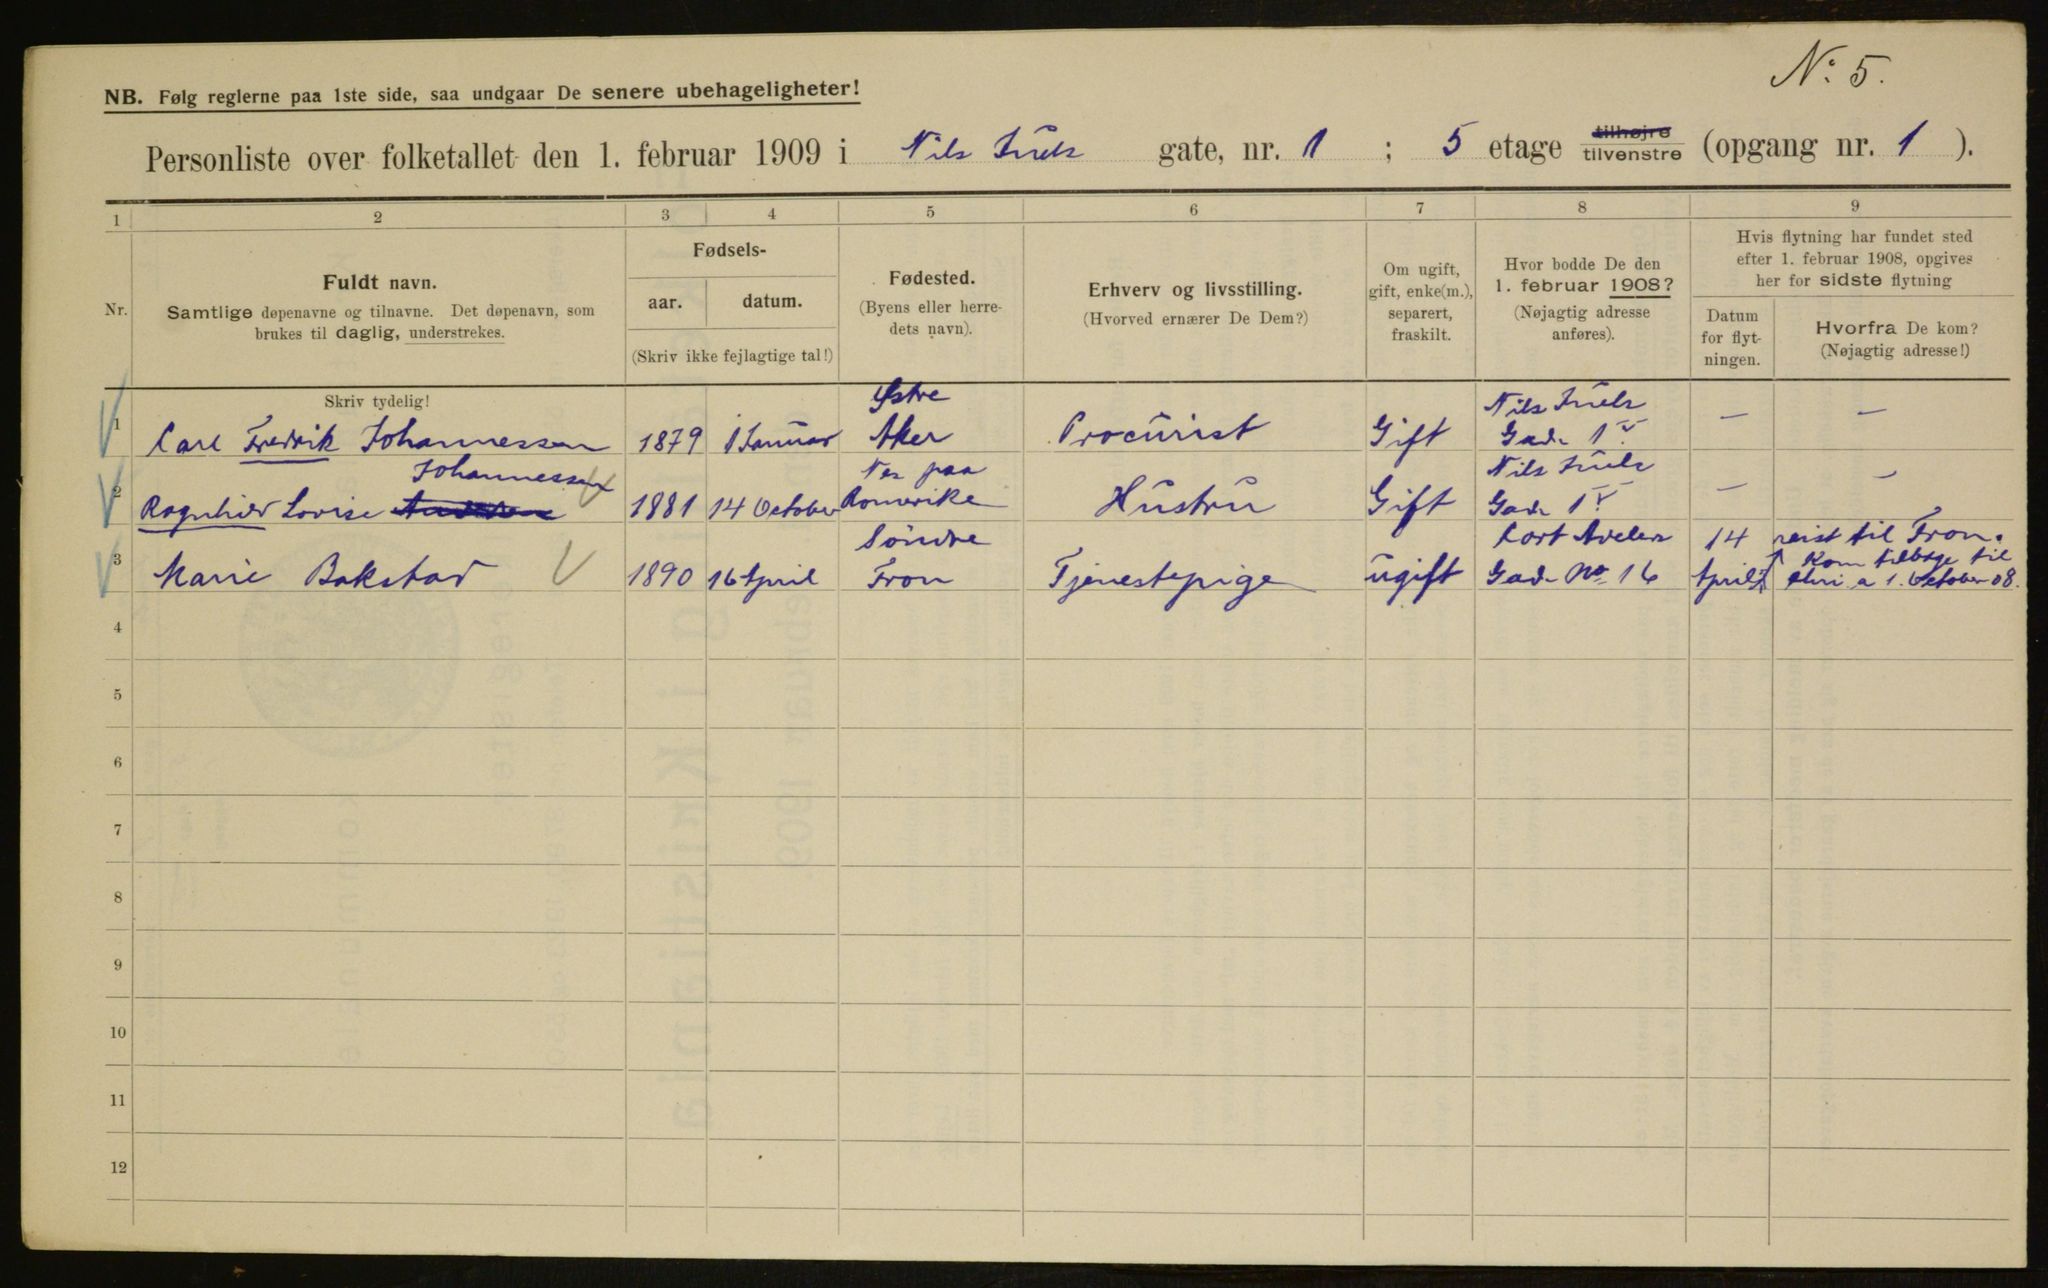 N: 5.
NB. Følg reglerne paa 1ste side, saa undgaar De senere ubehageligheter!
Personliste over folketallet den 1. februar 1909 i Nils Juels gate, nr. 1 ; 5 etage tilhøjre tilvenstre (opgang nr. 1 ).
1 2 3 4 5 6 7 8 9
Nr.
Fuldt navn.
Samtlige døpenavne og tilnavne. Det døpenavn, som
brukes til daglig, understrekes.
Fødsels-
aar. datum.
(Skriv ikke fejlagtige tal!)
Fødested.
(Byens eller herre-
dets navn).
Erhverv og livsstilling.
(Hvorved ernærer De Dem?)
Om ugift,
gift, enke(m.),
separert,
fraskilt.
Hvor bodde De den
1. februar 1908?
(Nøjagtig adresse
anføres).
Hvis flytning har fundet sted
efter 1. februar 1908, opgives
her for sidste flytning
Datum
for flyt-
ningen.
Hvorfra De kom?
(Nøjagtig adresse!)
Skriv tydelig!
Østre Nils Juels
1 Carl Fredrik Johannessen 1879 1 Januar Aker Procurist Gift Gade 1 V. — —
Johannessen Nes paa Nils Juels
2 Ragnhild Lovise 1881 14 October Romerike Hustru Gift Gade 1 V — —
Söndre Cort Adelers 14 reist til Fron.
3 Marie Bakstad 1890 16 April Fron Tjenestepige ugift Gade No 16 April Kom tilbage til
Chri a 1. October 08.
4
5
6
7
8
9
10
11
12